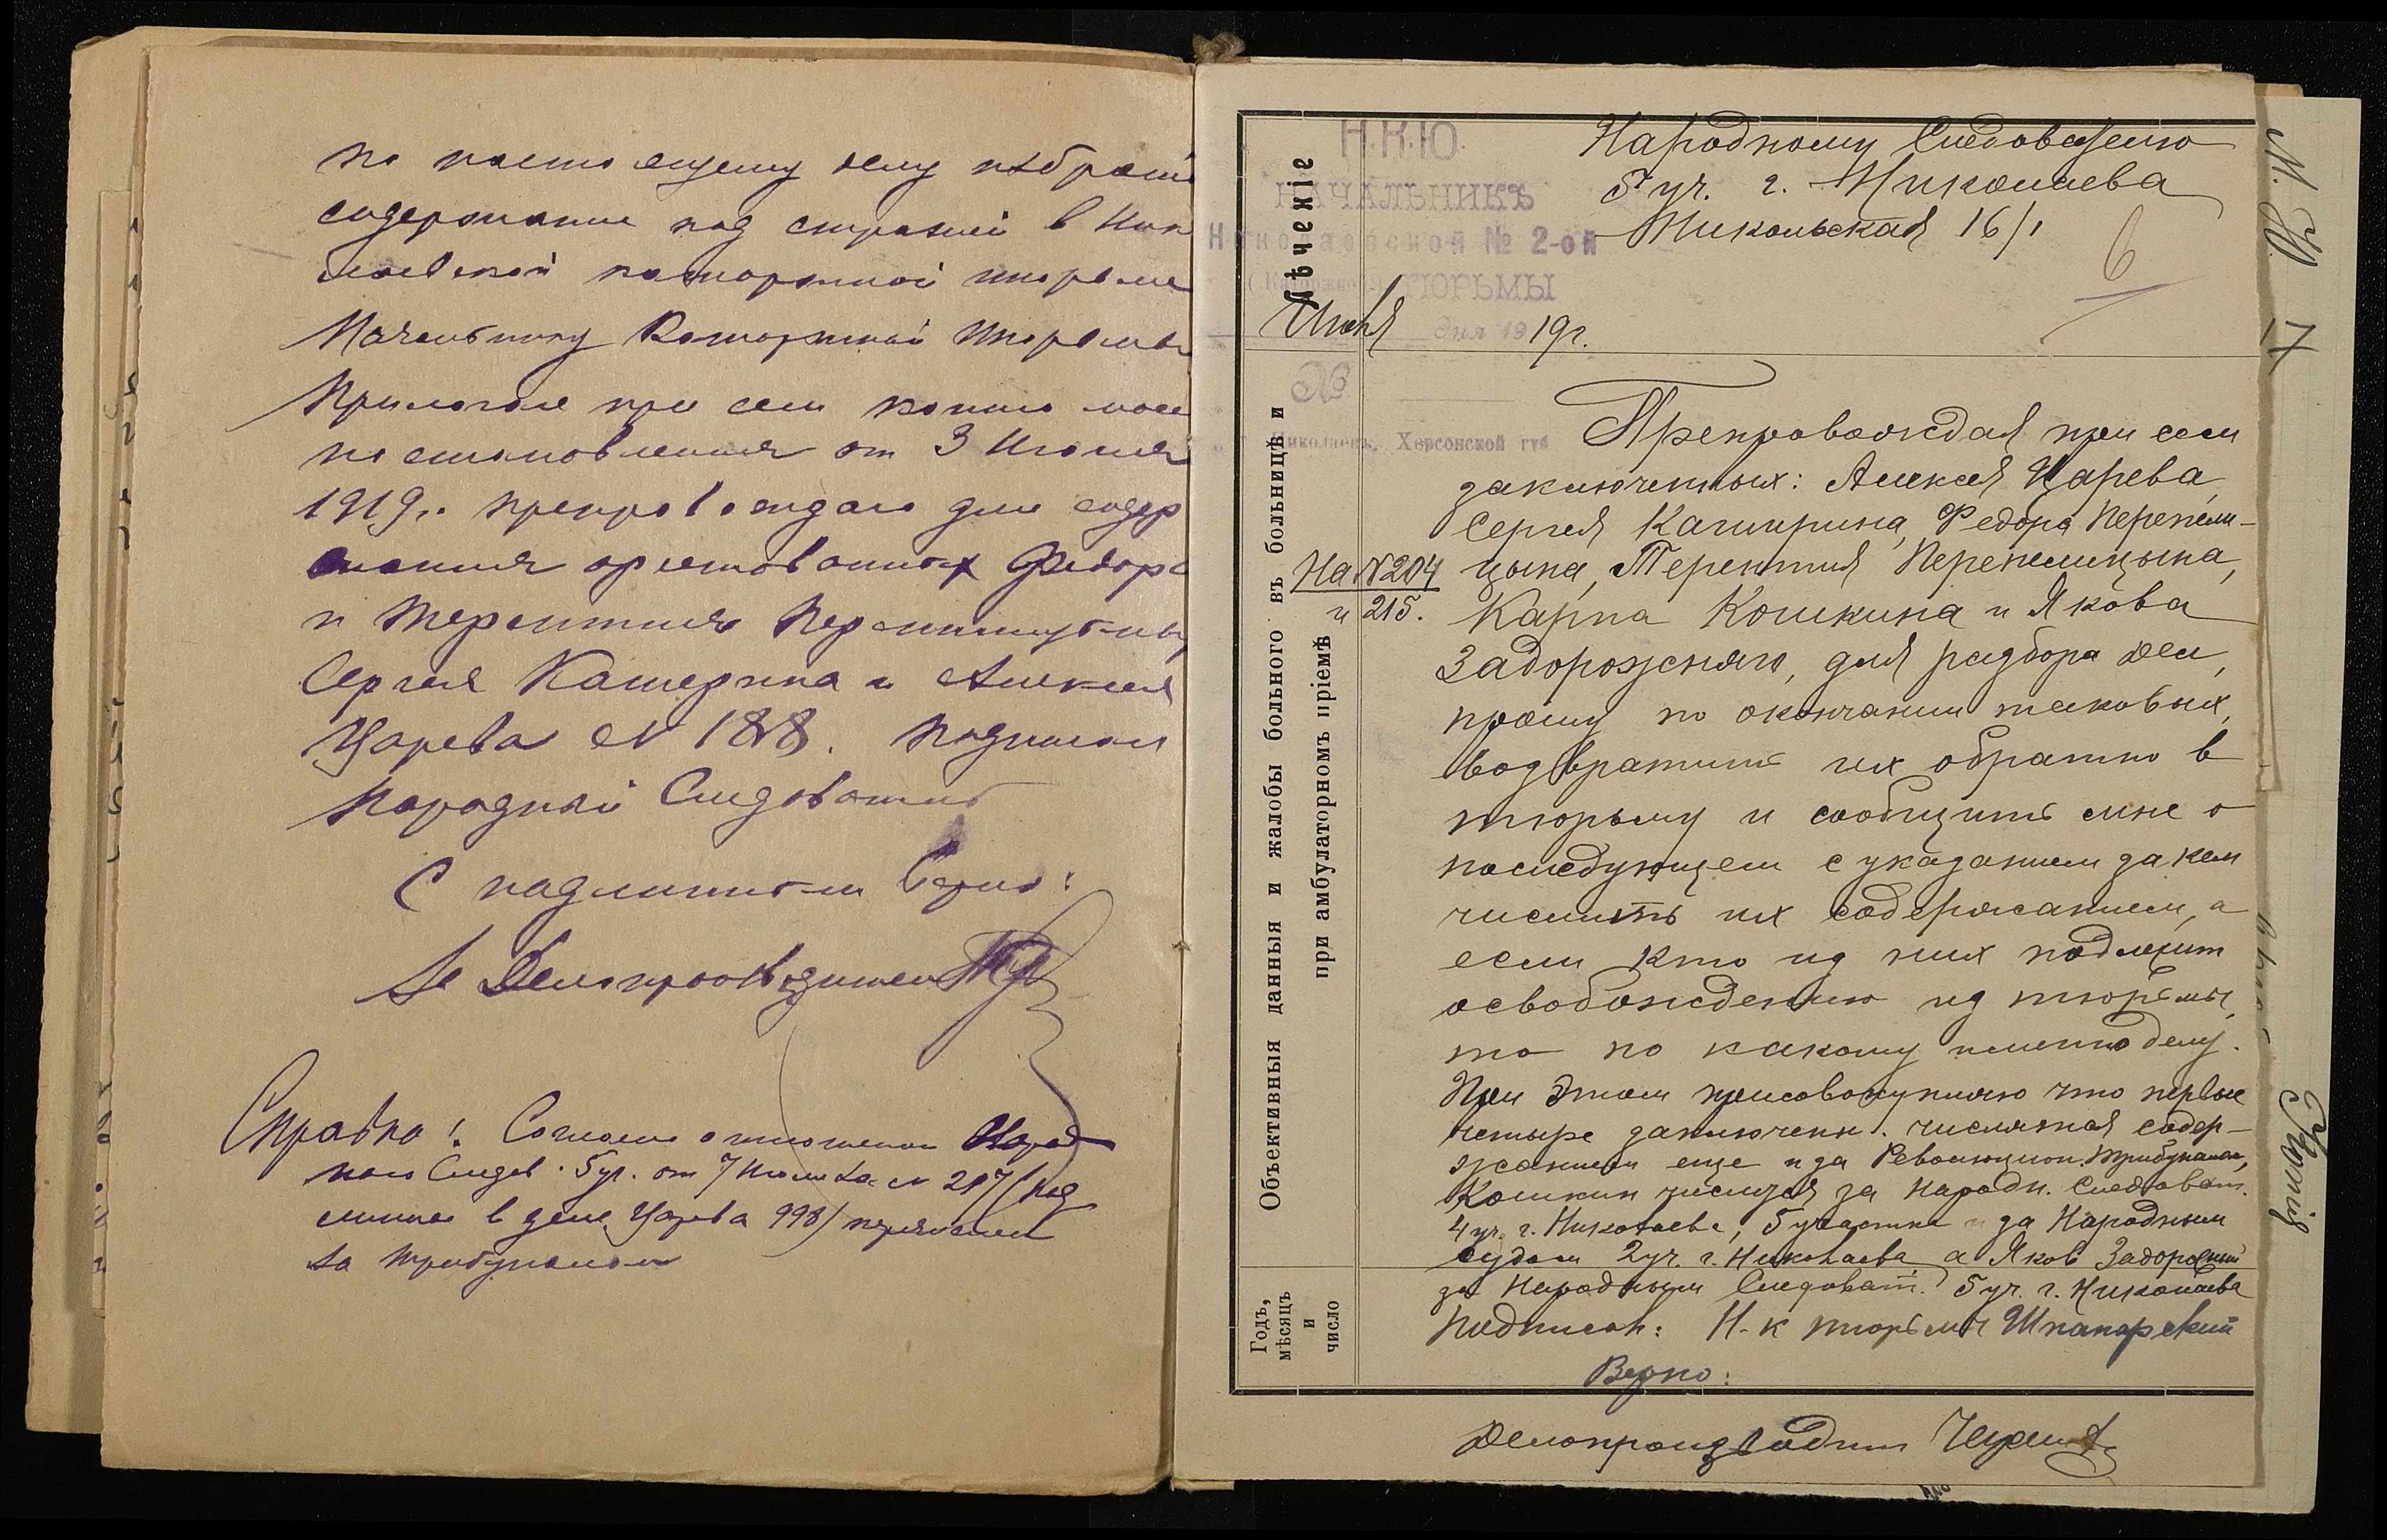 по настоящему делу избрать
содержание под стражей в Нико
лаевской каторжной тюрьме
Начальнику Каторжной Тюрьмы
Прилагая при сем копию мое
постановления от 3 Июня
1919 г. препровождаю для содер
жания арестованных Федора
и Терентия Перепелицыных
Сергея Каширина и Алексея
Царева № 188. подписал
Народный Следователь
С подлинным верно:
Делопроизводитель
Справка: Согласно отношения Народ
ного Следов. 5 уч. от 7 Июля за № 217/под
линное в деле Царева 998/ перечислен
за трибуналом
Н.К.Ю.
НАЧАЛЬНИКЪ
Николаевской № 2-ой
(Каторжной) ТЮРЬМЫ
Июня дня 1919 г.
№
г. Николаевъ, Херсонской губ
На № 204
и 215.
Народному Следователю
5 уч. г. Николаева
Никольская 16/1
6
Препровождая при сем
заключенных: Алексея Царева,
Сергея Каширина, Федора Перепели-
цына, Терентия Перепелицына,
Карпа Кошкина и Якова
Задорожняго, для разбора дел,
прошу по окончании таковых,
возвратить их обратно в
тюрьму и сообщить мне о
последующем с указанием за кем
числить их содержанием, а
если кто из них подлежит
освобождению из тюрьмы,
то по какому именно делу.
При этом присовокупляю что первые
четыре заключенн. числятся содер-
жанием еще и за Революцион. трибуналом,
Кошкин числится за Народн. Следоват.
4 уч. г. Николаева, 5 участка и за Народным
судом 2 уч. г. Николаева, а Яков Задорожний
за Народным Следоват. 5 уч. г. Николаева
Подписал: Н-к тюрьмы Шпанарский
Верно:
Делопроизводит
Лѣченіе
Объективныя данныя и жалобы больного въ больницѣ и
при амбулаторномъ пріемѣ
Годъ,
мѣсяцъ
и
число
17